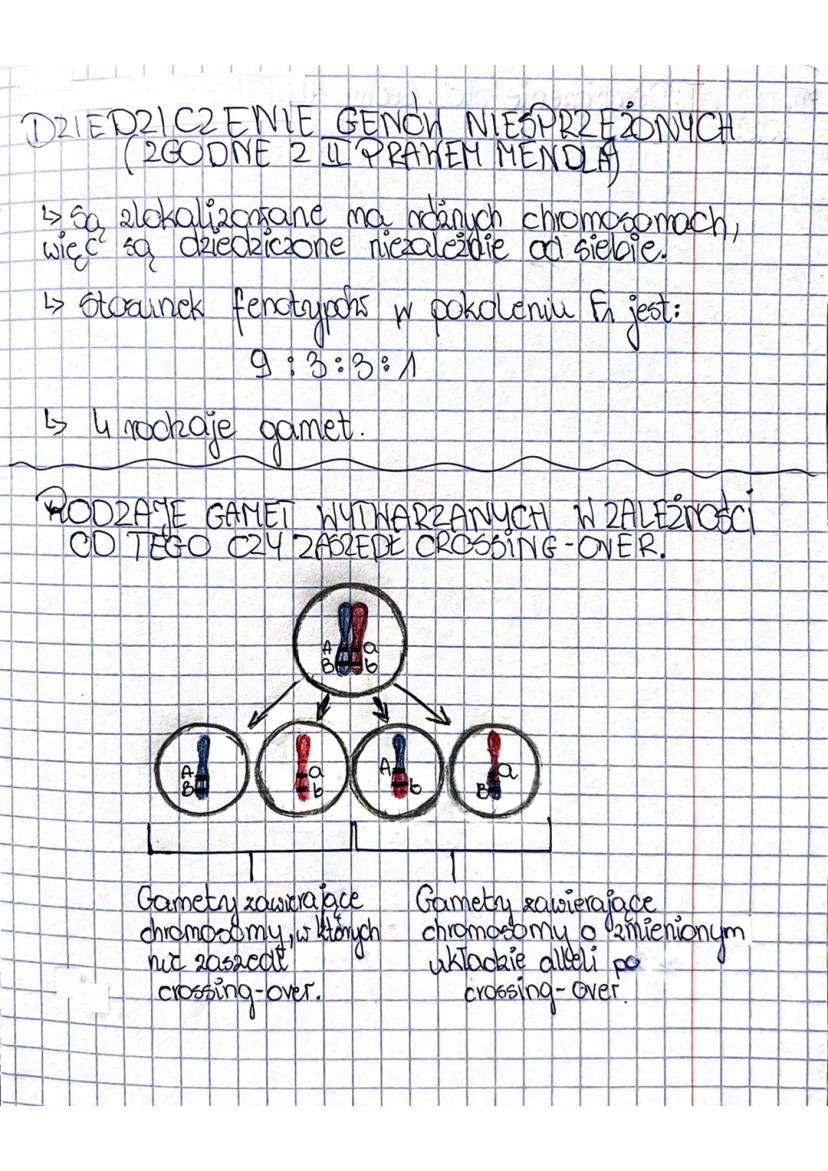 DZIEDZICZENIE GENÓW NIESPRZĘŻONYCH
(ZGODNE Z II PRAWEM MENDLA)
↳ Są zlokalizowane na różnych chromosomach,
więc są dziedziczone niezależnie od siebie.
↳ Stosunek fenotypów w pokoleniu F1 jest:
9 : 3 : 3 : 1
↳ 4 rodzaje gamet.
RODZAJE GAMET WYTWARZANYCH W ZALEŻNOŚCI
OD TEGO CZY ZASZEDŁ CROSSING-OVER.
A a
B b
A a A a
B b b B
Gamety zawierające
chromosomy, w których
nie zaszedł
crossing-over.
Gamety zawierające
chromosomy o zmienionym
układzie alleli po
crossing-over.